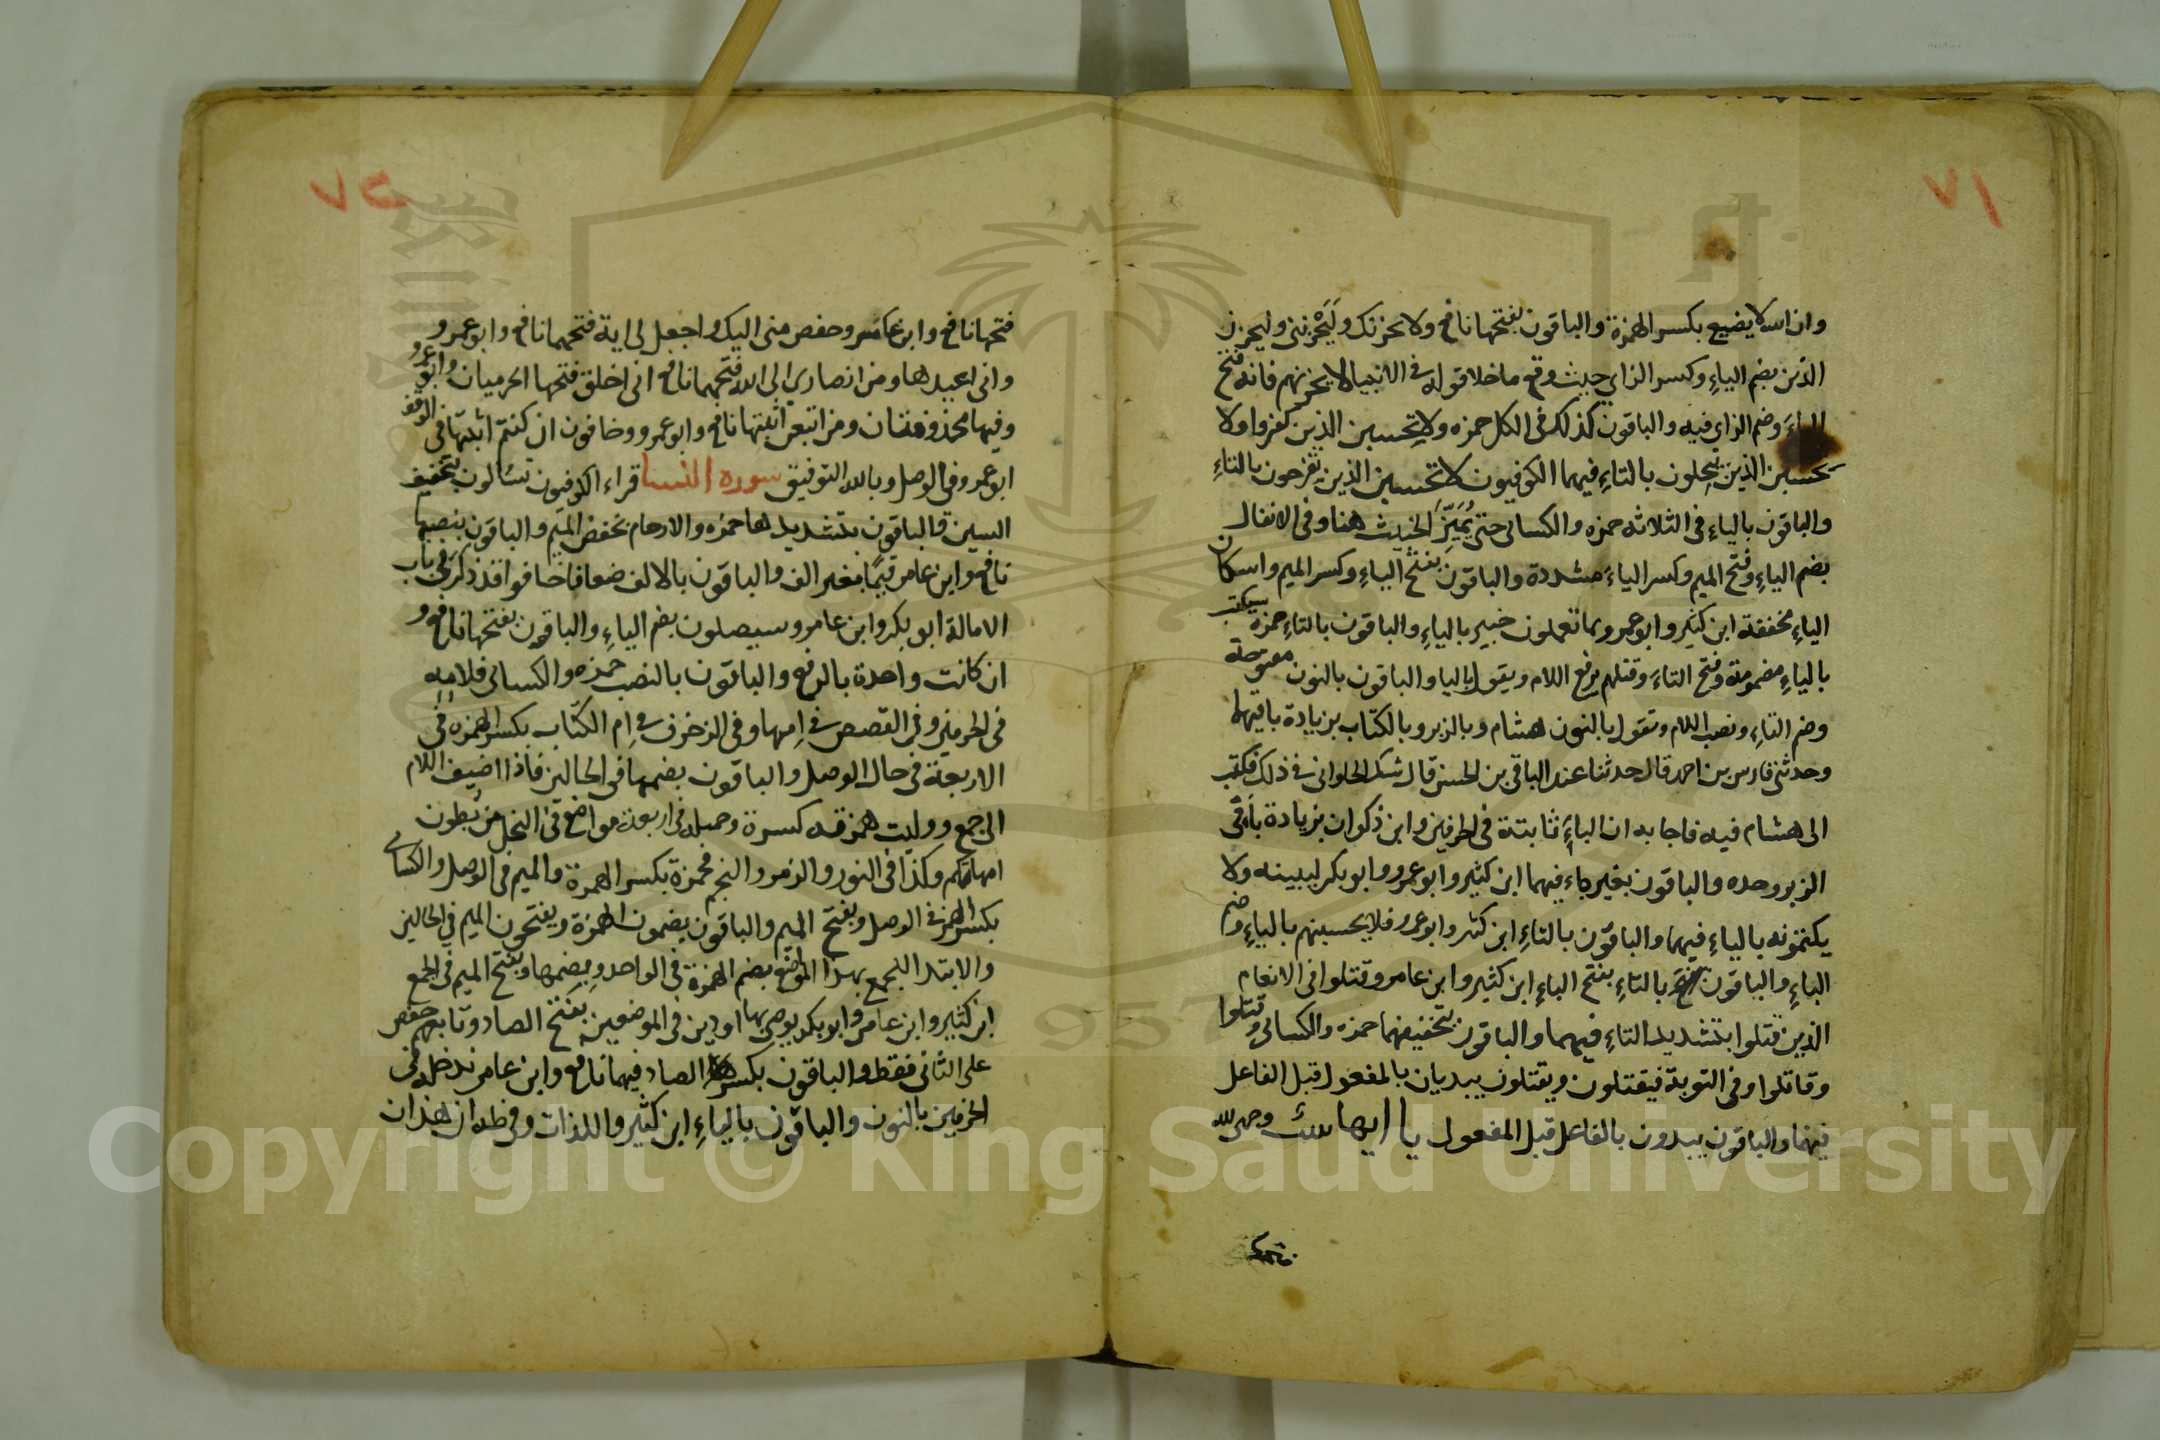 ٧١
وان الله لا يضيع بكسر الهمزة والباقون بفتحها نافع ولا يحزنك ولَيَحْزُنني وليحزن
الذين بضم الياء وكسر الزاي حيث وقع ما خلا قوله في الانبيا لا يحزنهم فانه فتح
الياء وضم الزاي فيه والباقون كذلك في الكل حمزه ولا تحسبن الذين كفروا ولا
تحسبن الذين يبخلون بالتاء فيهما الكوفيون لا تحسبن الذين يفرحون بالتاء
والباقون بالياء في الثلاثه حمزه والكسائى حتى يُمَيِّزَ الخبيث هنا وفى الانفال
بضم الياء وفتح الميم وكسر الياء مشددة والباقون بفتح الياء وكسر الميم واسكان
الياء مخففة ابن كثير وابو عمرو بما تعملون خبير بالياء والباقون بالتاء حمزه سيكتب
بالياء مضمومة وفتح التاء وقتلهم برفع اللام ويقول باليا والباقون بالنون مفتوحة
وضم التاء ونصب اللام ونقول بالنون هشام وبالزبر وبالكتاب بزيادة با فيهما
وحدثنى فارس بن احمد قال حدثنا عبد الباقى بن الحسن قال شك الحلوانى في ذلك فكتب
الى هشام فيه فاجابه ان الباء ثابتة في الحرفين وابن ذكوان بزيادة باء في
الزبر وحده والباقون بغير باء فيهما ابن كثير وابو عمرو وابو بكر ليبيننه ولا
يكتمونه بالياء فيهما والباقون بالتاء ابن كثير وابو عمرو فلا يحسبنهم بالياء وضم
الباء والباقون بالتاء بفتح الباء ابن كثير وابن عامر وقتلوا فى الانعام
الذين قتلوا بتشديد التاء فيهما والباقون بتخفيفهما حمزه والكسائى وقتلوا
وقاتلوا وفى التوبة فيقتلون ويقتلون يبديان بالمفعول قبل الفاعل
فيهما والباقون يبدون بالفاعل قبل المفعول يا اتها ست وجهى لله
فتحها
٧٢
فتحها نافع وابن عامر وحفص منى اليك واجعل لى اية فتحهما نافع وابو عمرو
وانى اعيدها ومن انصارى الى الله فتحهما نافع انى اخلق فتحها الحرميان وابو عمرو
وفيها محذوفتان ومن اتبعن اثبتها نافع وابو عمرو وخافون ان كنتم اثبتها فى الوصل
ابو عمرو فى الوصل وبالله التوفيق سورة النسا قراء الكوفيون تسالون بتخفيف
السين والباقون بتشديدها حمزه والارحام بخفض الميم والباقون بنصبها
نافع وابن عامر قيمًا بغير الف والباقون بالالف ضعافا خافوا قد ذكر فى باب
الامالة ابو بكر وابن عامر وسيصلون بضم الياء والباقون بفتحها نافع و
ان كانت واحدة بالرفع والباقون بالنصب حمزه والكسائى فلامه
فى الحرفين وفى القصص في امها وفى الزخرف في ام الكتاب بكسر الهمزه فى
الاربعة فى حال الوصل والباقون بضمها فى الحالين فاذا اضيف اللام
الى جمع ووليت همزته كسرة وجملته فى اربعة مواضع فى النحل من بطون
امهاتكم وكذا فى النور والزمر والنجم فحمزة بكسر الهمزة والميم فى الوصل والكسائى
بكسر الهمزة في الوصل وبفتح الميم والباقون يضمون الهمزة ويفتحون الميم في الحالين
والابتدا للجمع بهذا المواضع بضم الهمزة فى الواحد وبضمها وبفتح الميم فى الجمع
ابن كثير وابن عامر وابو بكر يوصى بها او دين فى الموضعين بفتح الصاد وتابعهم حفص
على الثانى فقط والباقون بكسر الصاد فيهما نافع وابن عامر ندخله فى
الحرفين بالنون والباقون بالياء ابن كثير واللذان وفى طه ان هذان
Copyright © King Saud University
1957